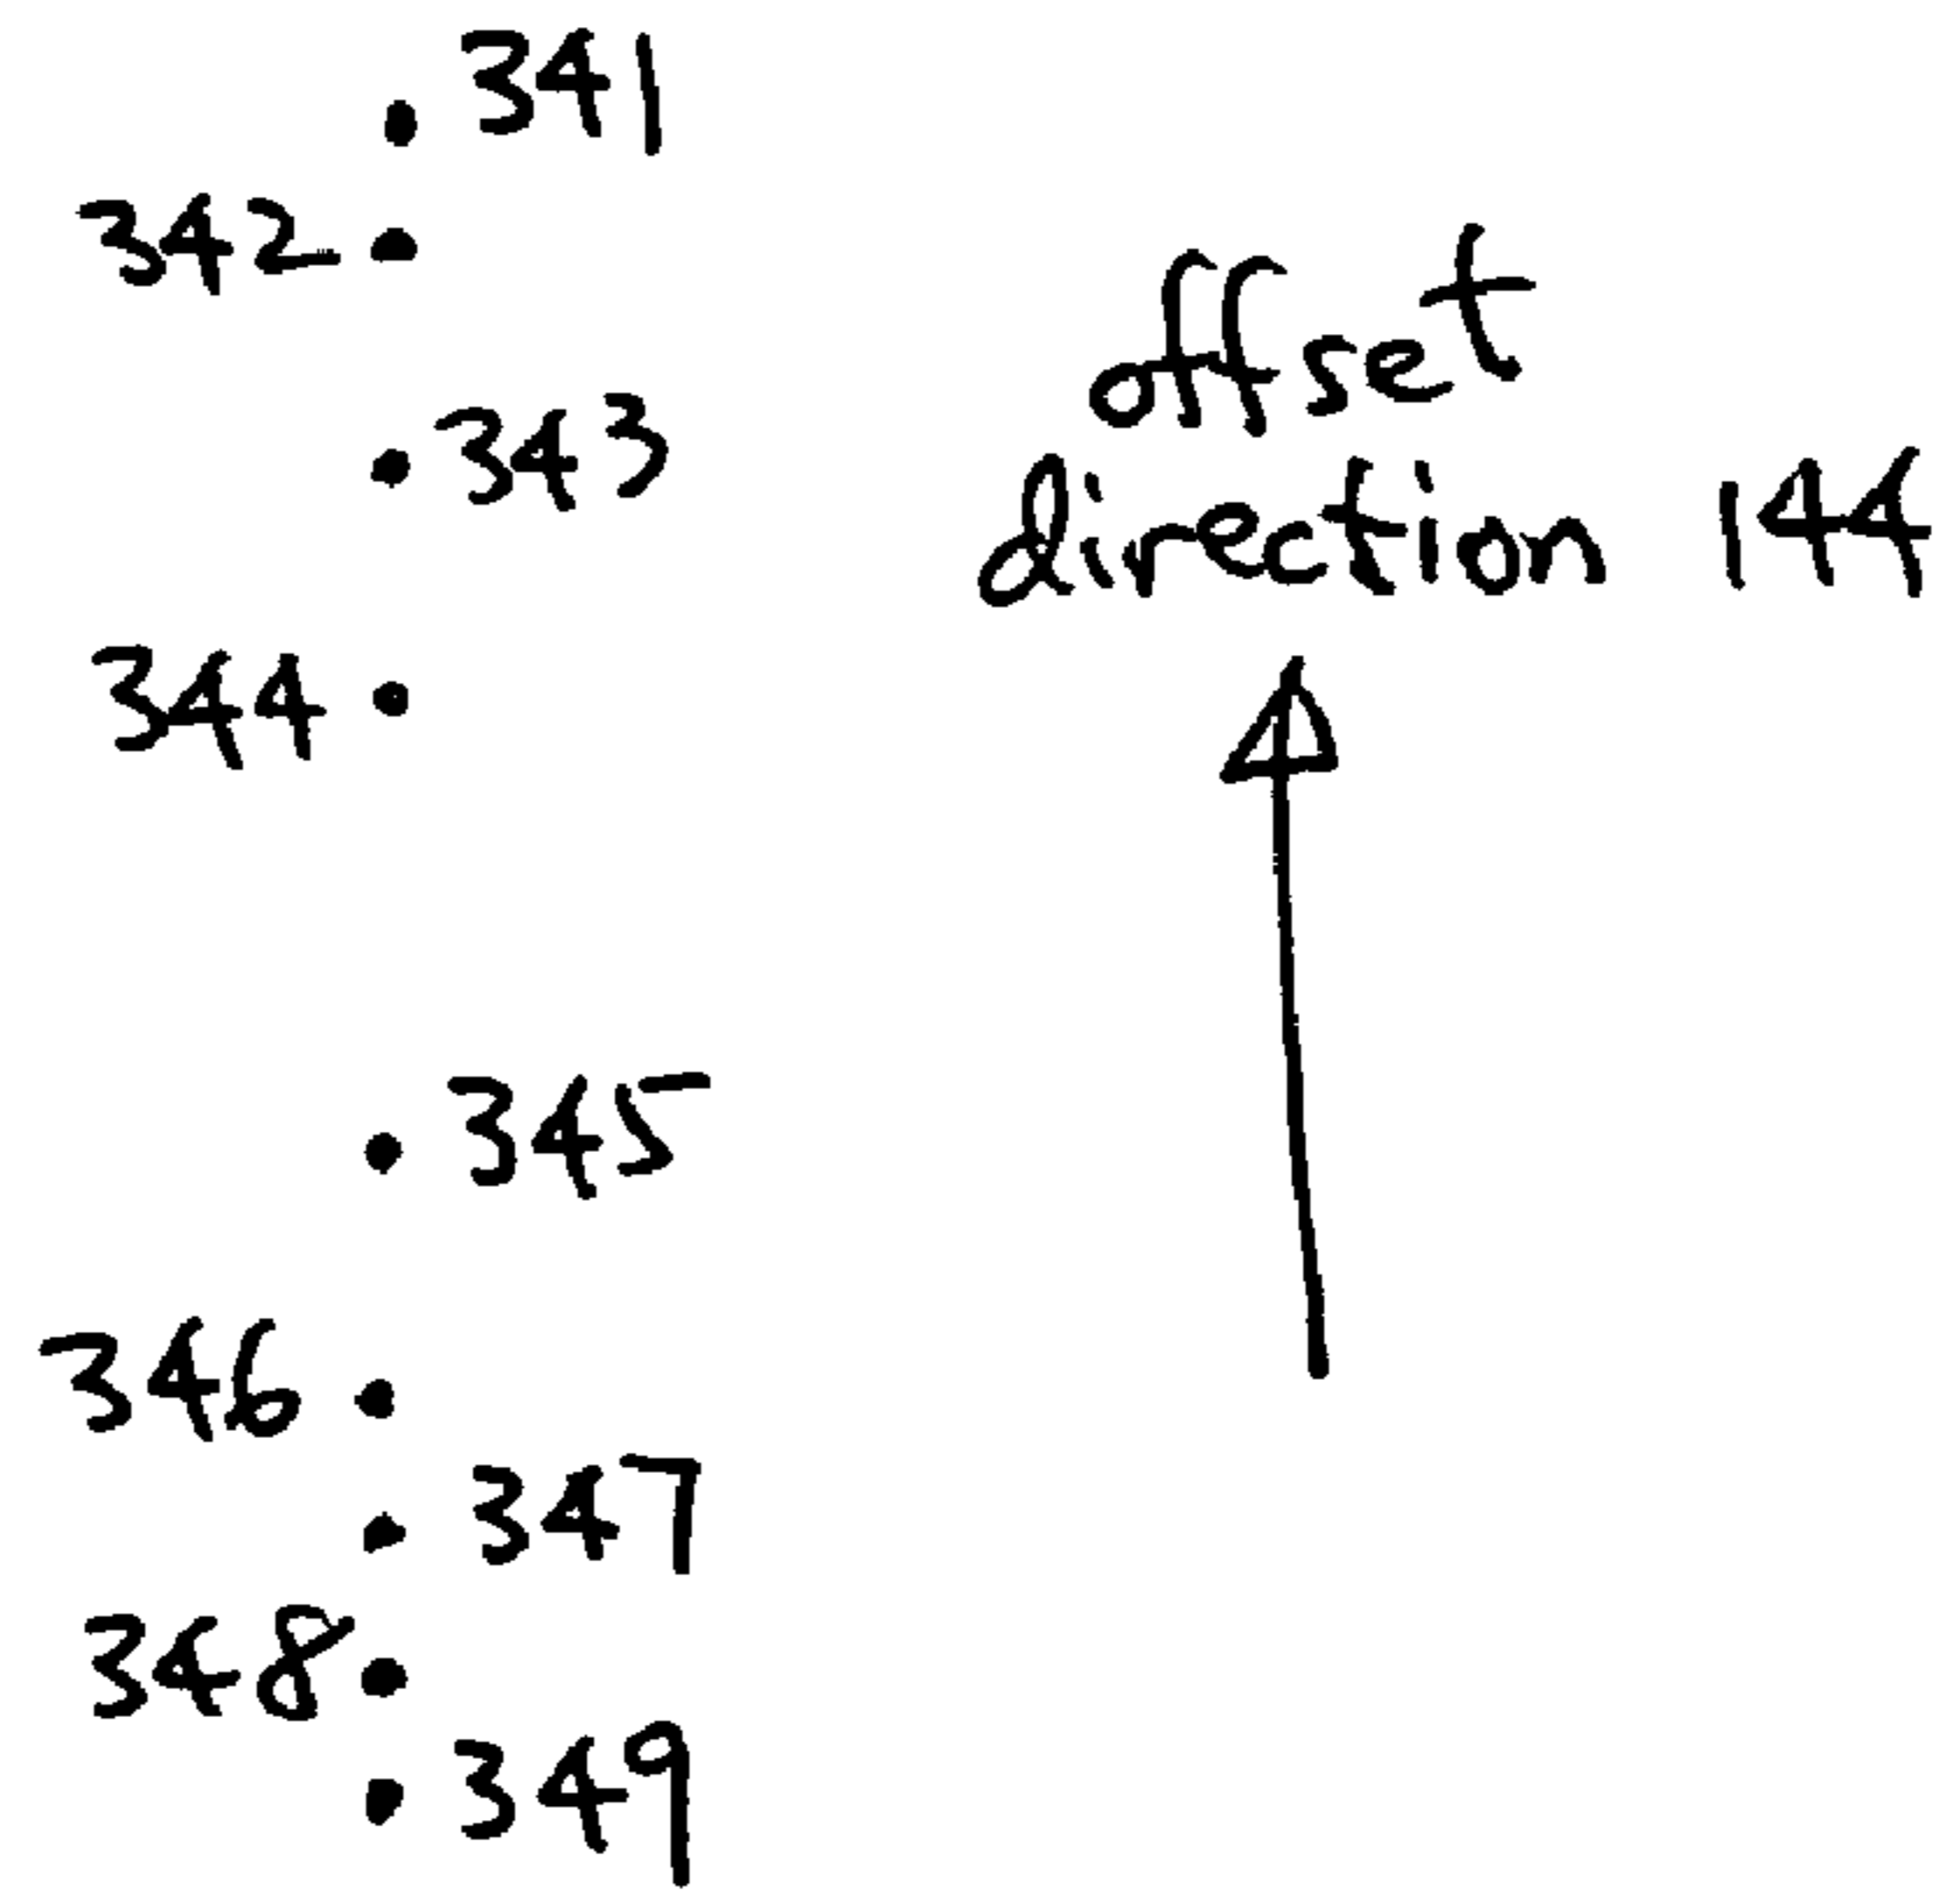 341
342
343
344
345
346
347
348
349
offset
direction 144